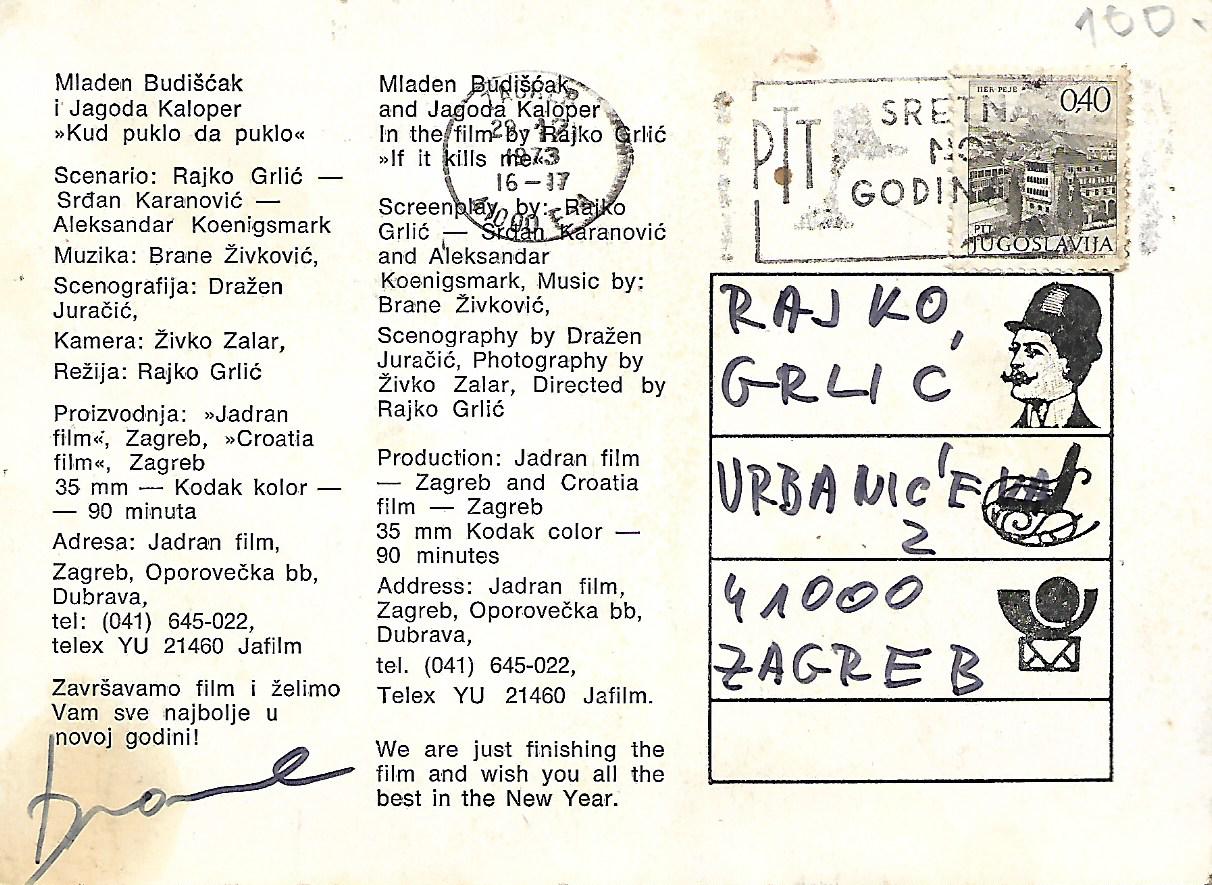 100.-
Mladen Budišćak
i Jagoda Kaloper
»Kud puklo da puklo«
Scenario: Rajko Grlić —
Srđan Karanović —
Aleksandar Koenigsmark
Muzika: Brane Živković,
Scenografija: Dražen
Juračić,
Kamera: Živko Zalar,
Režija: Rajko Grlić
Proizvodnja: »Jadran
film«, Zagreb, »Croatia
film«, Zagreb
35 mm — Kodak kolor —
— 90 minuta
Adresa: Jadran film,
Zagreb, Oporovečka bb,
Dubrava,
tel: (041) 645-022,
telex YU 21460 Jafilm
Završavamo film i želimo
Vam sve najbolje u
novoj godini!
Mladen Budišćak
and Jagoda Kaloper
In the film by Rajko Grlić
»If it kills me«
Screenplay by: Rajko
Grlić — Srđan Karanović
and Aleksandar
Koenigsmark, Music by:
Brane Živković,
Scenography by Dražen
Juračić, Photography by
Živko Zalar, Directed by
Rajko Grlić
Production: Jadran film
— Zagreb and Croatia
film — Zagreb
35 mm Kodak color —
90 minutes
Address: Jadran film,
Zagreb, Oporovečka bb,
Dubrava,
tel. (041) 645-022,
Telex YU 21460 Jafilm.
We are just finishing the
film and wish you all the
best in the New Year.
1973
16-17
41000
PTT
SRETNA
GODIN
0,40
PTT
JUGOSLAVIJA
RAJKO,
GRLIĆ
URBANIĆEVA
2
41000
ZAGREB